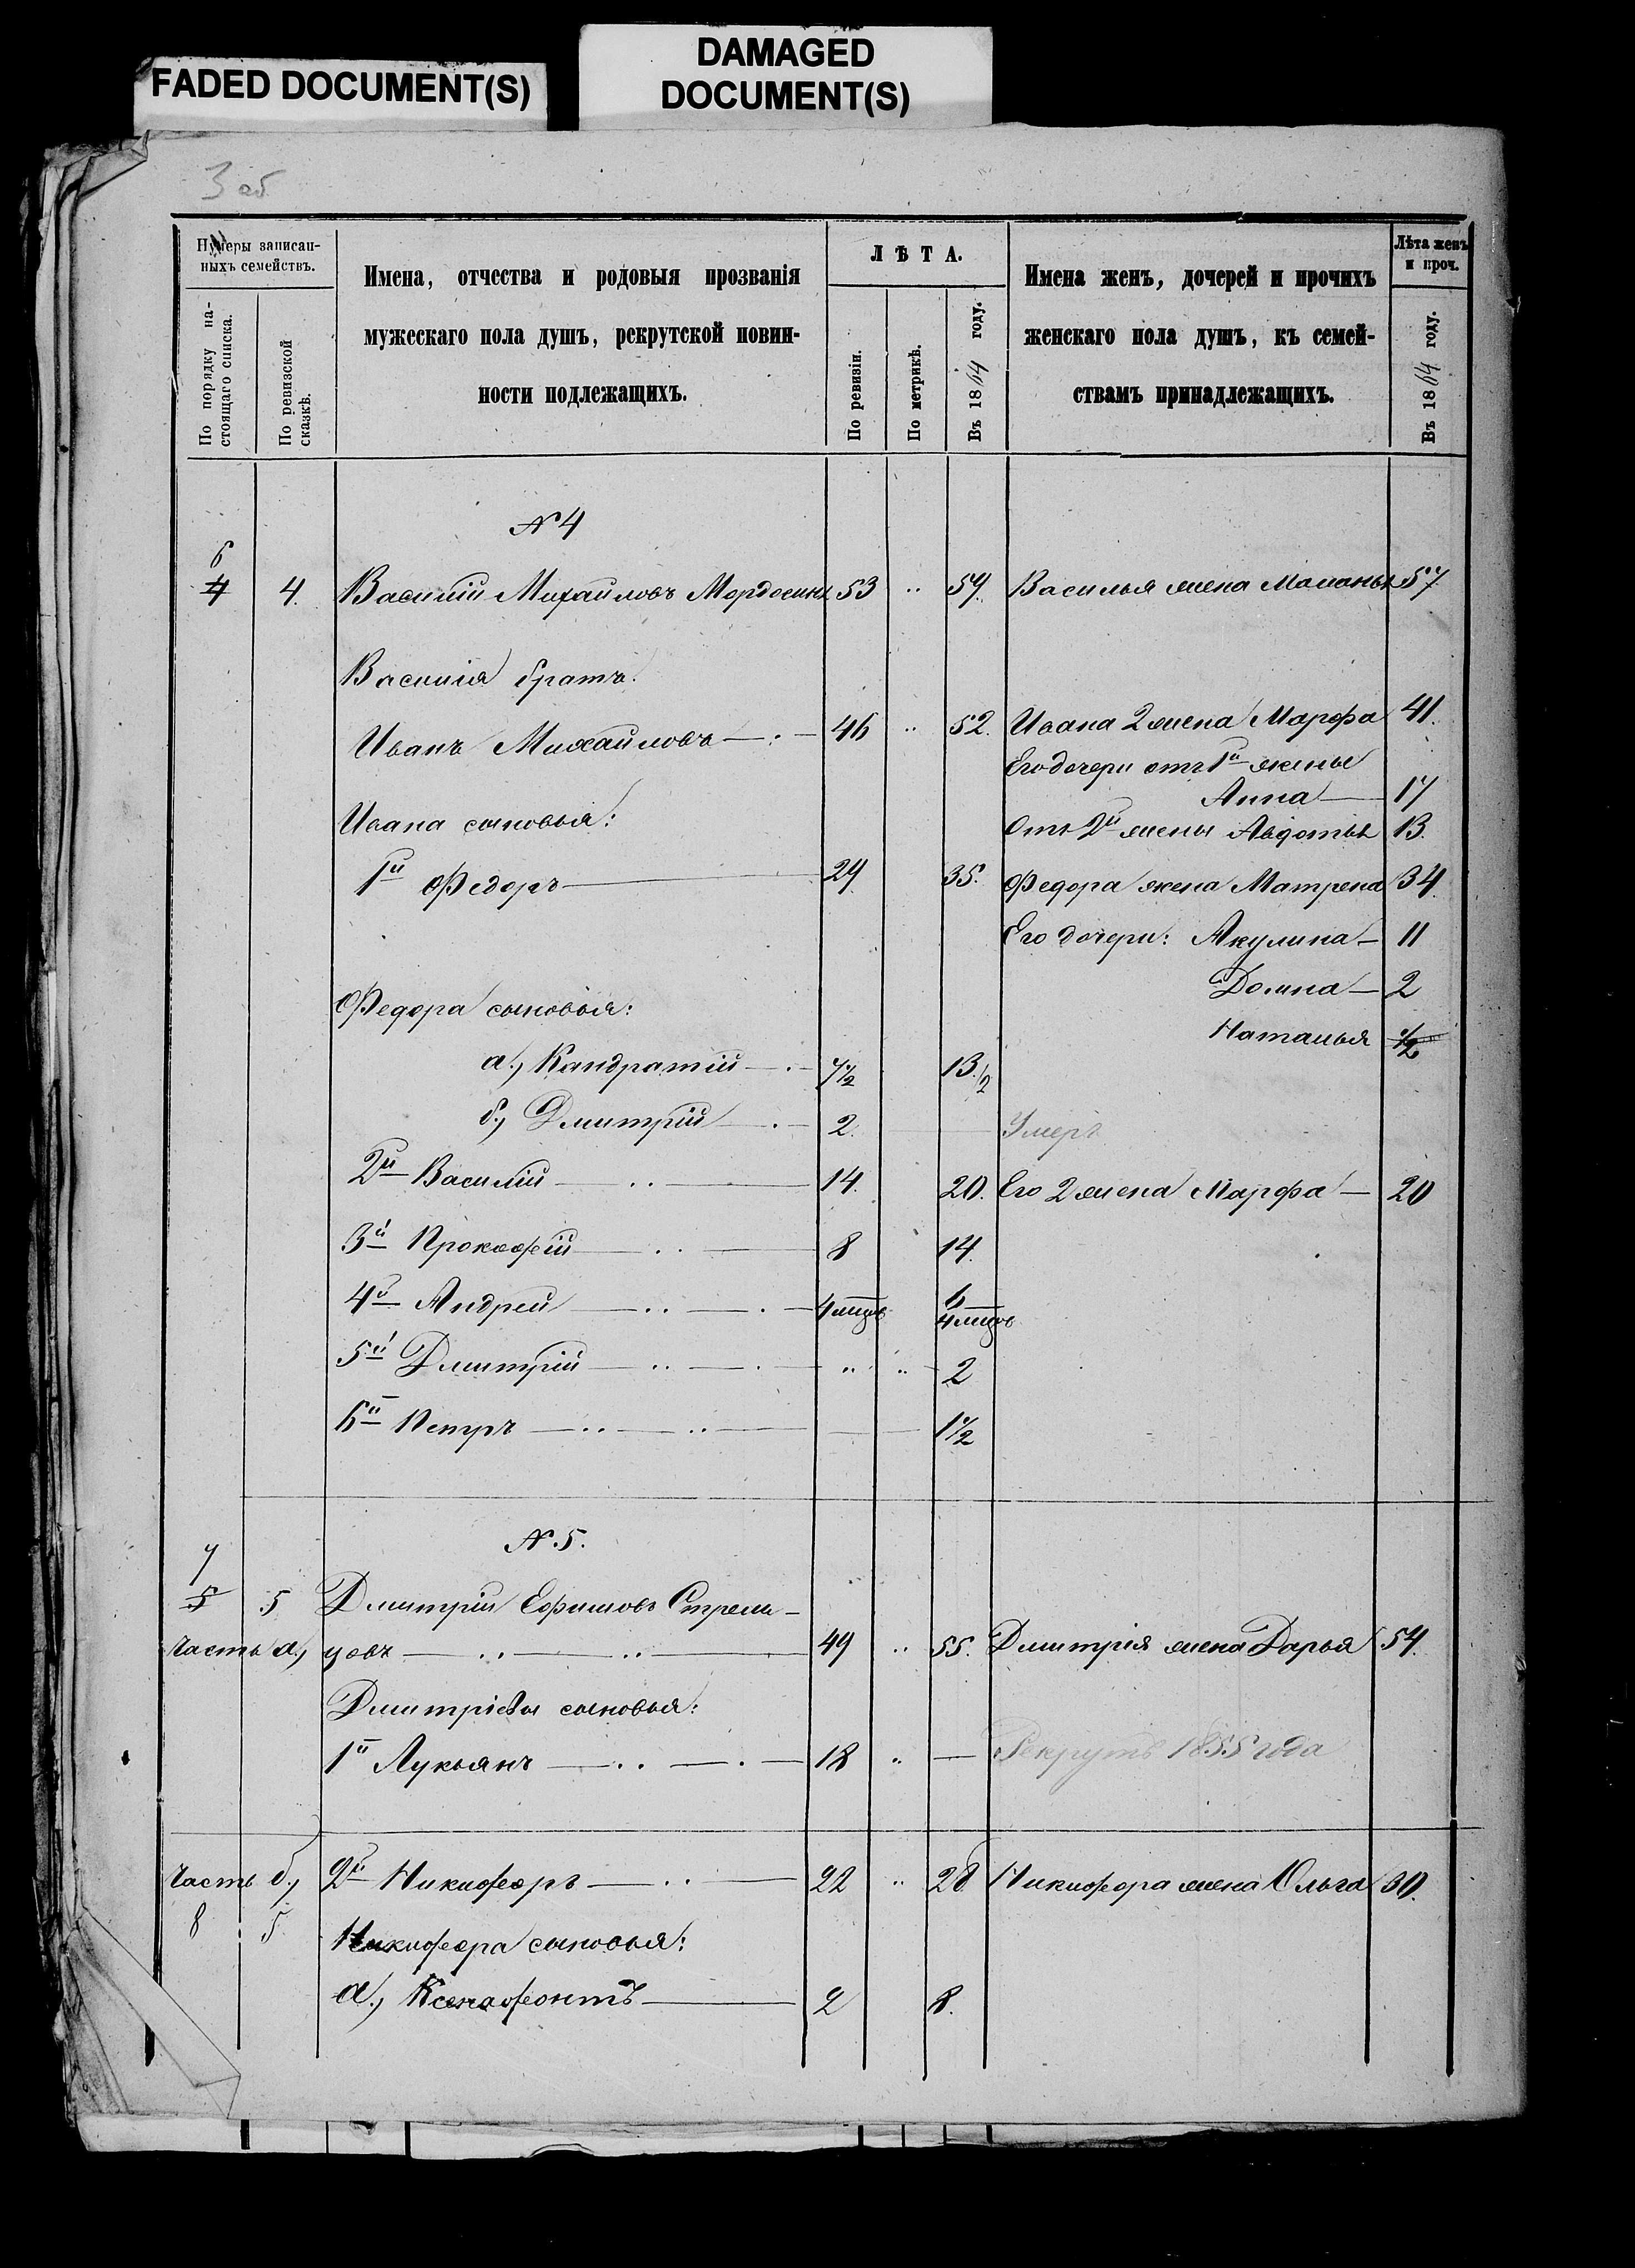 FADED DOCUMENT(S)
DAMAGED
DOCUMENT(S)
3 об
Нумеры записан-
ныхъ семействъ.
По порядку на-
стоящаго списка.
По ревизской
сказкѣ.
Имена, отчества и родовыя прозванія
мужескаго пола душъ, рекрутской повин-
ности подлежащихъ.
ЛѢТА.
По ревизіи.
По метрикѣ.
Въ 1864 году.
Имена женъ, дочерей и прочихъ
женскаго пола душъ, къ семей-
ствамъ принадлежащихъ.
Лѣта женъ
и проч.
Въ 1864 году.
N 4
6
4 4. Василій Михайловъ 53 „ 59. Василья жена Маланья 57
Василія братъ.
Иванъ Михайловъ 46 „ 52. Ивана 2 жена Марфа 41.
Его дочери отъ 1й жены
Анна 17
Ивана сыновья: Отъ 2й жены Авдотья 13.
1й Федоръ 29 35. Федора жена Матрена 34.
Его дочери: Акулина 11
Домна 2
Федора сыновья:
Наталья 1/2
а., Кандратій 7 1/2 13 1/2
б., Дмитрій 2. Умеръ
2й Василій 14. 20. Его 2 жена Марфа 20
3й Прокофій 8 14.
4й Андрей 4 мцов 6
4 мцов
5й Дмитрій „ „ 2
6й Петръ 1 1/2
N 5.
7
5 5 Дмитрій Ефимовъ Стрель-
Часть а., цовъ 49 „ 55. Дмитрія жена Дарья 54.
Дмитріевы сыновья:
1й Лукьянъ 18 „ — Рекрутъ 1855 года
Часть б., 2й Никифоръ 22 „ 28 Никифора жена Ольга 30.
8 5
Никифора сыновья:
а., Ксенофонтъ 2 8.